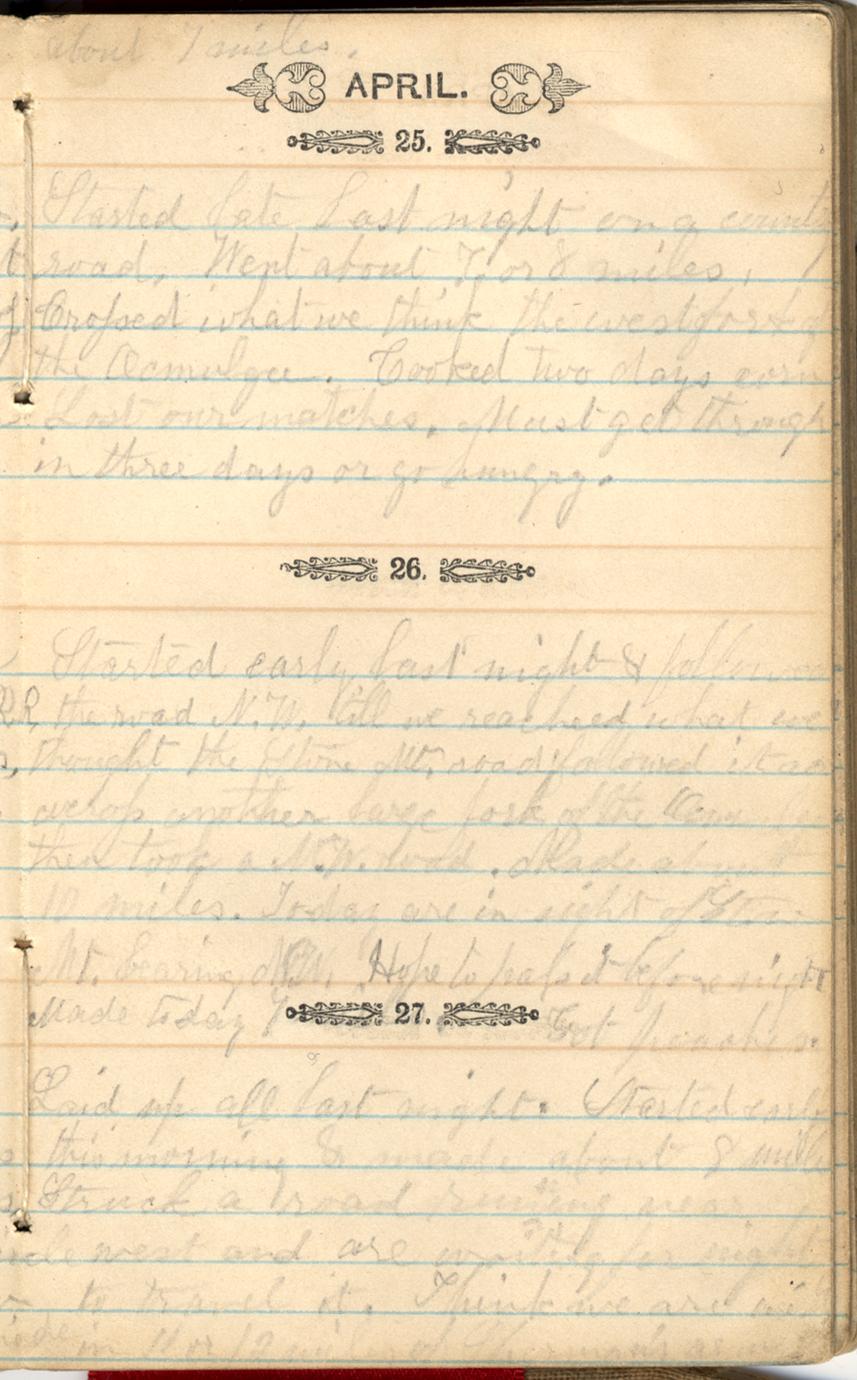 about 7 miles.
APRIL.
25.
Started late last night on a country
road. Went about 7 or 8 miles.
Crossed what we think the west fork of
the Ocmulgee. Cooked two days corn
Lost our matches. Must get through
in three days or go hungry.
26.
Started early last night & followed
RR, the road N.W. till we reached what we
thought the Stone Mt. road followed it
across another large fork of the
then took a N.W. road. Made about
10 miles. Today are in sight of Stone
Mt. bearing N.W. Hope to pass it before night
Made today 7 Got
27.
Laid up all last night. Started early
this morning & made about 8 miles
Struck a road running near
west and are waiting for night
to travel it. Think we are
in 11 or 12 miles of Sherman's